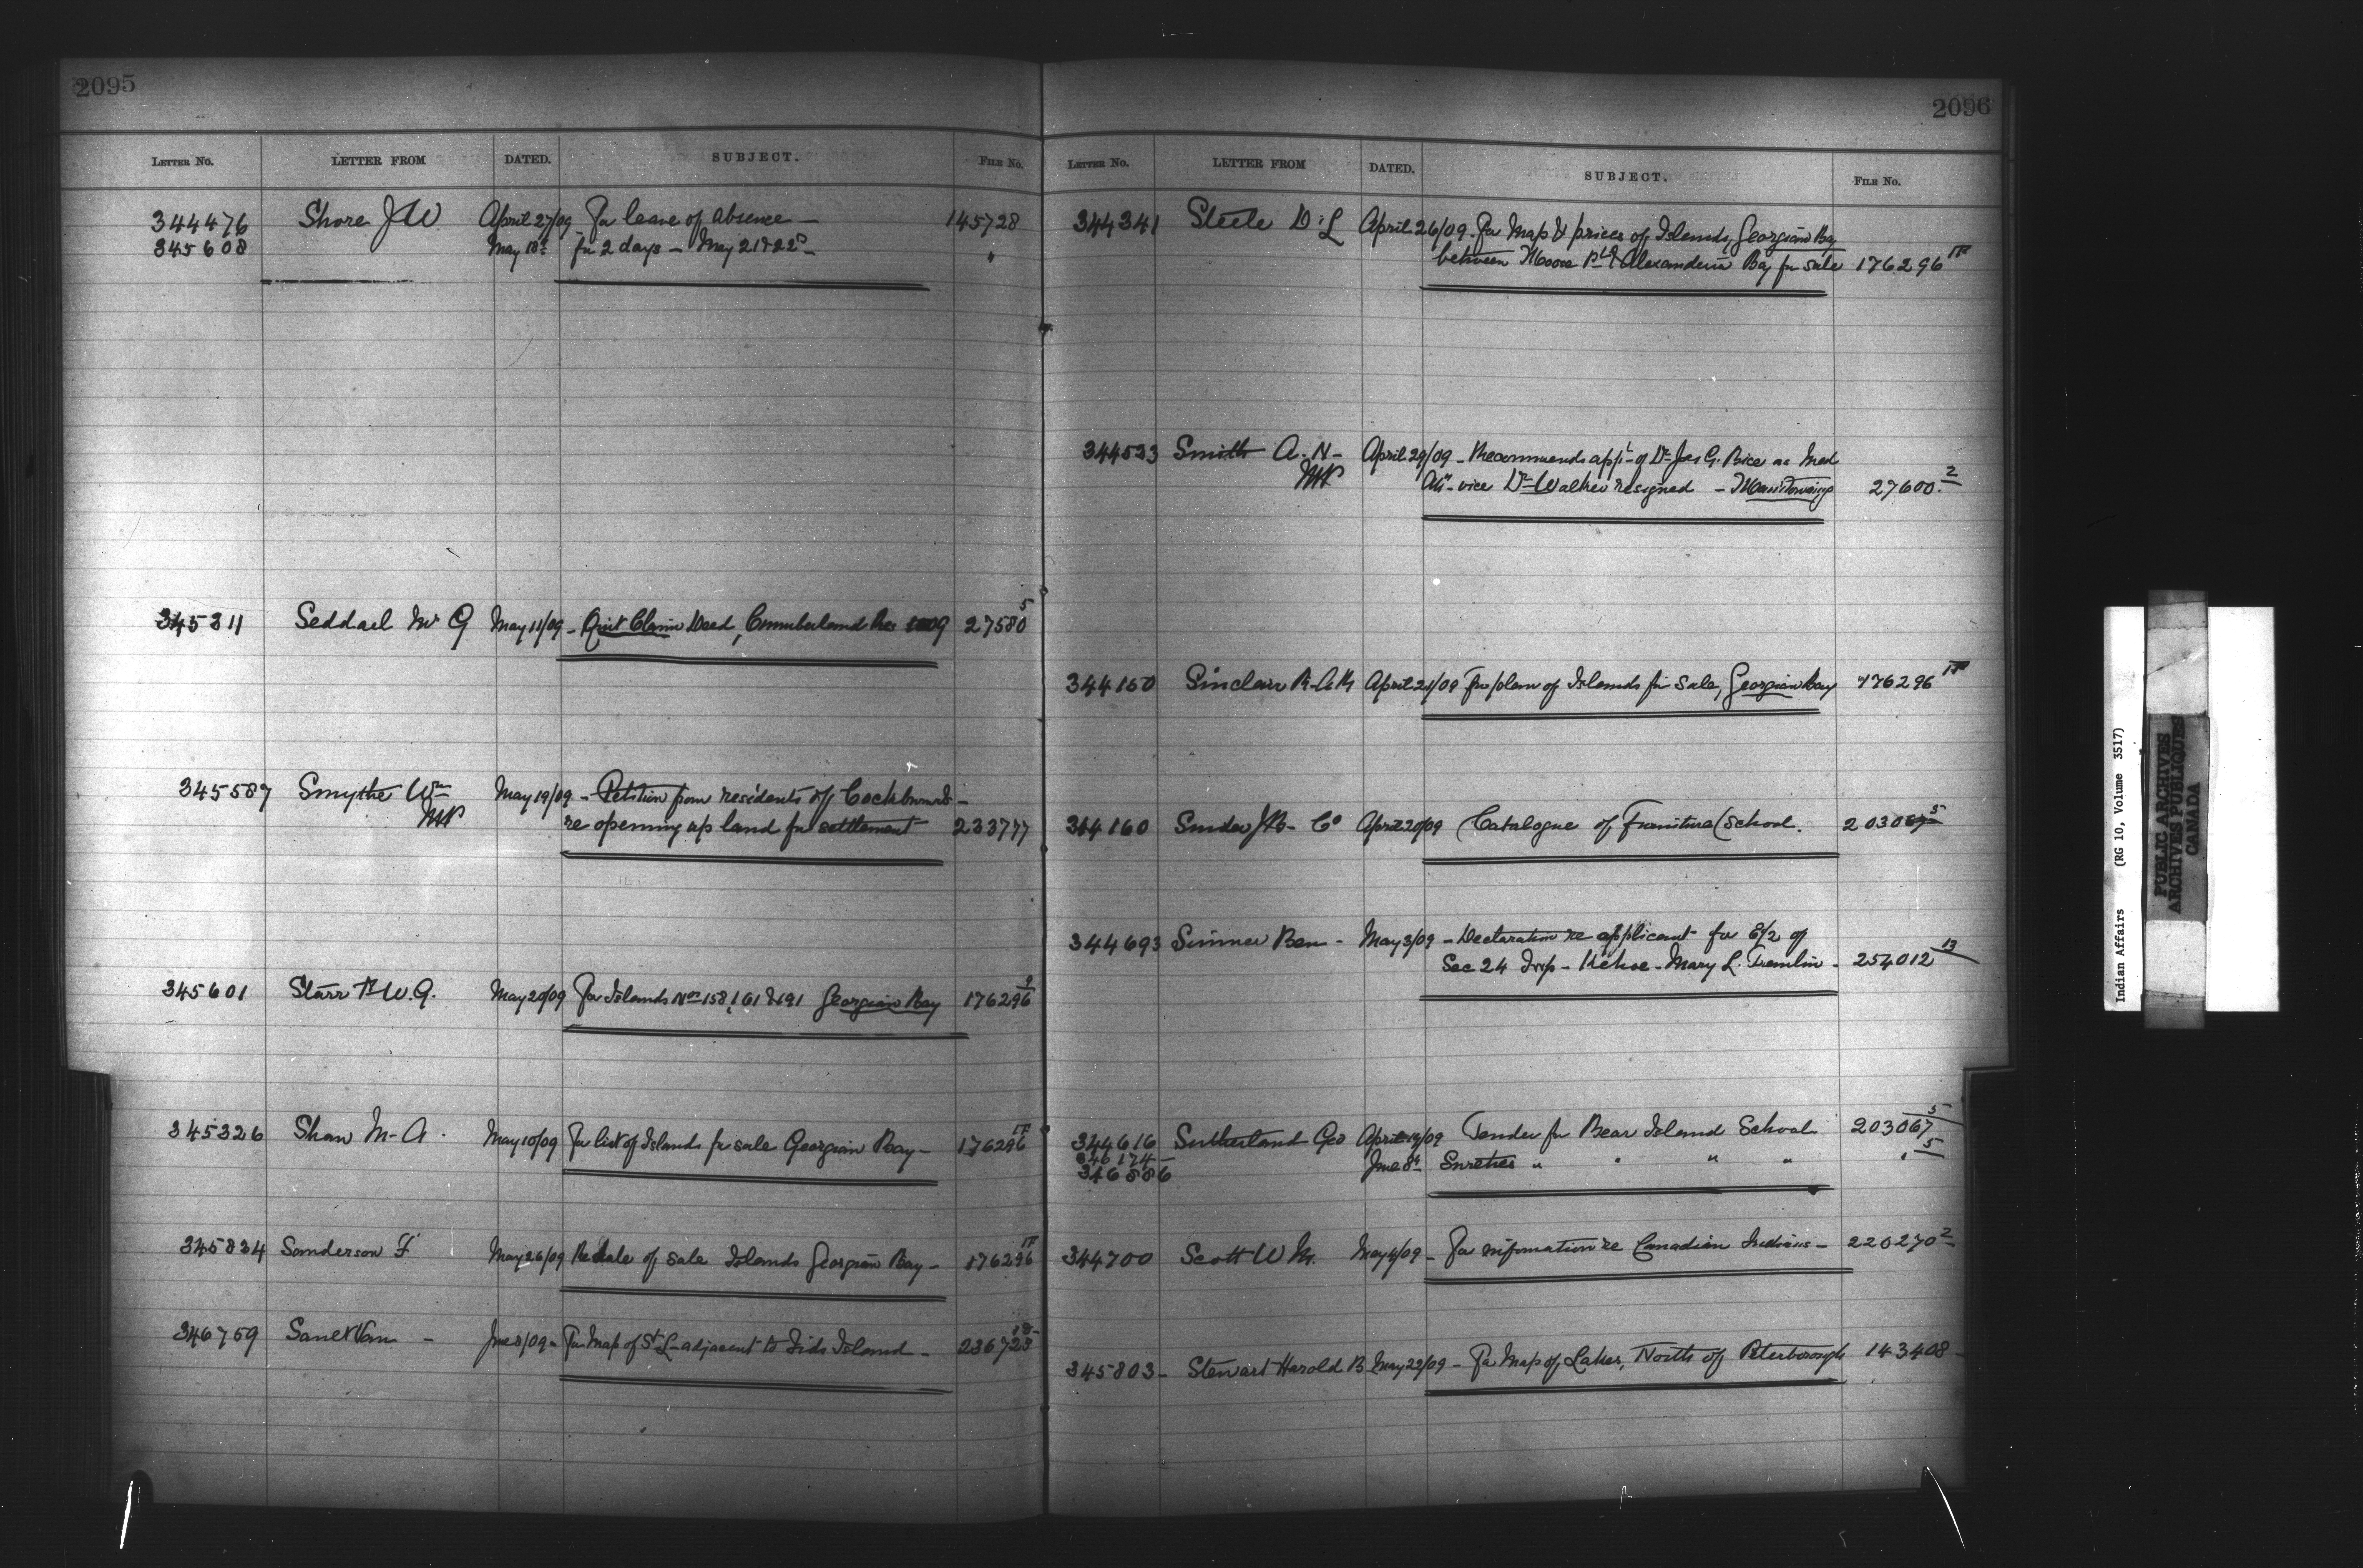 2095
LETTER NO. LETTER FROM DATED. SUBJECT. FILE NO.
344476 Shore J W April 27/09 For leave of absence — 145728
345608 May 18th for 2 days — May 21 & 22nd — "
345311 Seddall W G May 11/09 - Quit Claim Deed, Cumberland 27580 5
345587 Smythe Wm May 19/09 - Petition from residents of Cockburn Is -
MP re opening up land for settlement 233777
345601 Starr W.G. May 20/09 For Islands Nos 158, 161 & 191 Georgian Bay 176296 9
345326 Shaw M. A. May 10/09 For list of Islands for sale Georgian Bay — 176296
345834 Sanderson F May 26/09 Re date of sale Islands Georgian Bay — 176296
346759 June 8/09 - For Map of St L adjacent to Island — 236723
2096
LETTER NO. LETTER FROM DATED. SUBJECT. FILE NO.
344341 Steele D. L April 26/09. For Map & prices of Islands, Georgian Bay
between Moose Pt & Alexandria Bay for sale 176296
344533 Smith A. N - April 29/09 - Recommends appt of Dr Jas G. Price as Med
MP Att. vice Dr Walker resigned - Manitowaning 27600 2
344150 Sinclair April 21/09 For plan of Islands for sale, Georgian Bay 176296
344160 Snider J B - Co April 20/09 Catalogue of Furniture (School. 203067 5
344693 Sinner Ben - May 3/09 - Declaration re applicant for E/2 of
Sec 24 Twp - Kehoe - Mary L. Tremlin - 254012 13
344616 Sutherland Geo April 19/09 Tender for Bear Island School 203067 5
346174 June 8th Sureties " " " " " 5
346886
344700 Scott W M. May 4/09 - For information re Canadian Indians — 220270 2
345803 - Stewart Harold B May 22/09 - For Map of Lakes, North of Peterborough 143408 -
Indian Affairs (RG 10, Volume 3517)
PUBLIC ARCHIVES
ARCHIVES PUBLIQUES
CANADA